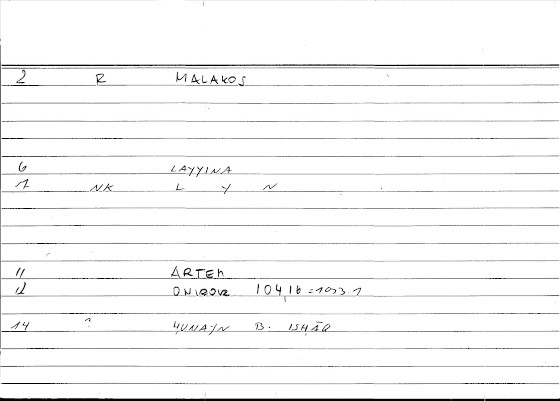 2 R MALAKOS
6 LAYYINA
7 NK L Y N
11 ARTEM
12 ONIROCR 104,16 = 1053.1
14 ? ḤUNAYN B. ISḤĀQ